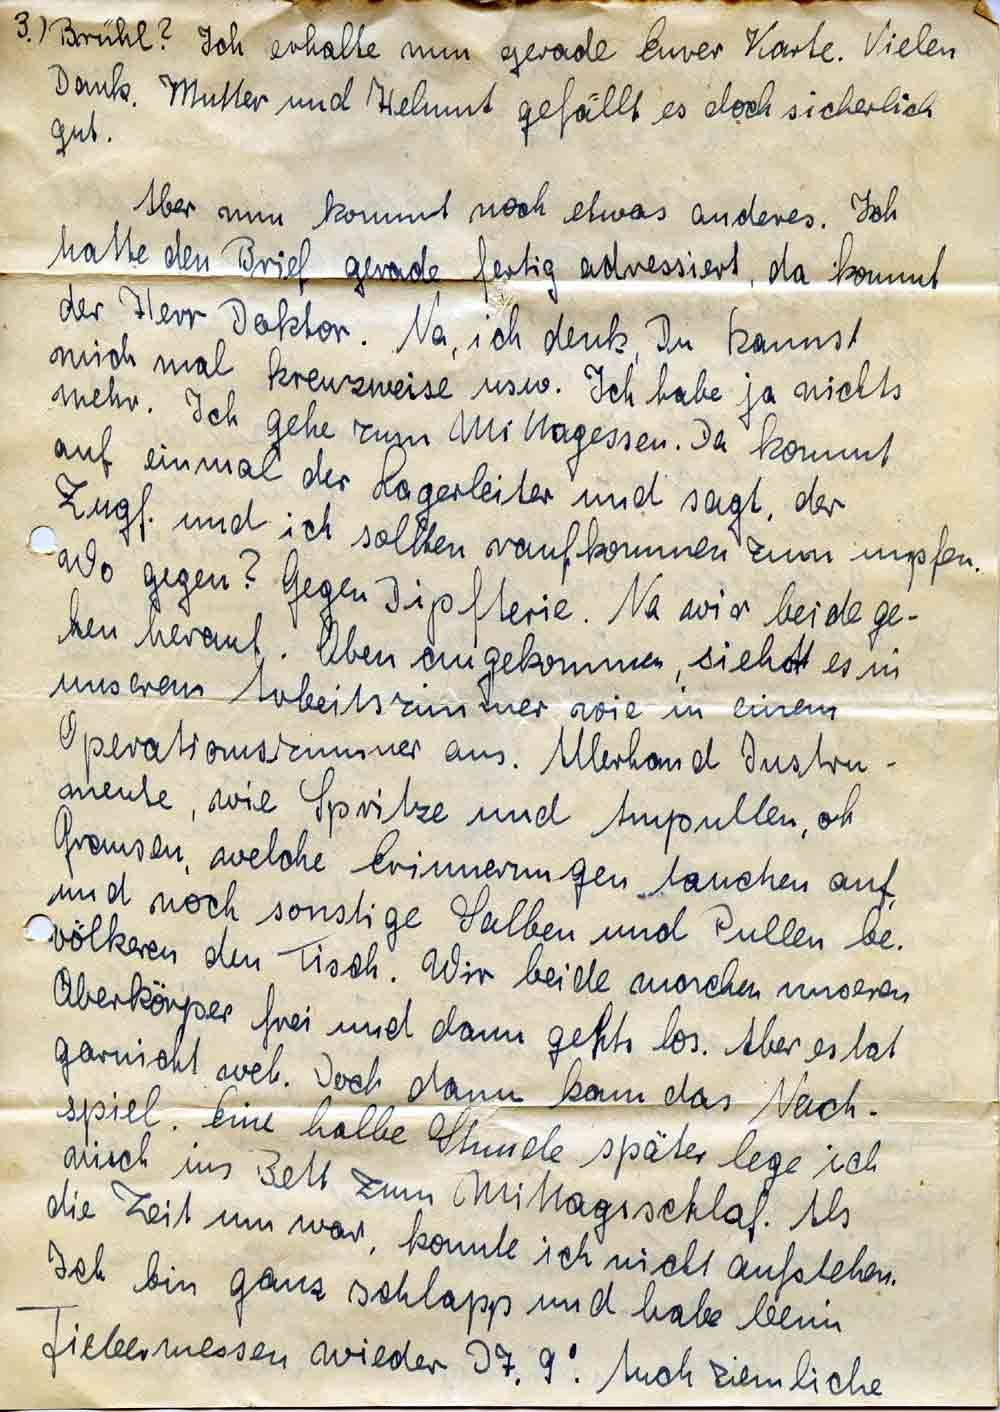 3.) Brühl? Ich erhalte nun gerade Euer Karte. Vielen
Dank. Mutter und Helmut gefällt es doch sicherlich
gut.
Aber nun kommt noch etwas anderes. Ich
hatte den Brief gerade fertig adressiert, da kommt
der Herr Doktor. Na, ich denk, Du kannst
mich mal kreuzweise usw. Ich habe ja nichts
mehr. Ich gehe zum Mittagessen. Da kommt
auf einmal der Lagerleiter und sagt, der
Zugf. und ich sollten raufkommen zum impfen.
Wo gegen? Gegen Dipfterie. Na wir beide ge-
hen herauf. Oben angekommen, sieht es in
unserem Arbeitszimmer wie in einem
Operationszimmer aus. Allerhand Instru-
mente, wie Spritze und Ampullen, oh
Grausen, welche Erinnerungen tauchen auf,
und noch sonstige Salben und Pullen be-
völkeren den Tisch. Wir beide machen unseren
Oberkörper frei und dann gehts los. Aber es tat
garnicht weh. Doch dann kam das Nach-
spiel. Eine halbe Stunde später lege ich
mich ins Bett zum Mittagsschlaf. Als
die Zeit um war, konnte ich nicht aufstehen.
Ich bin ganz schlapp und habe beim
Fiebermessen wieder 37,9°. Auch ziemliche